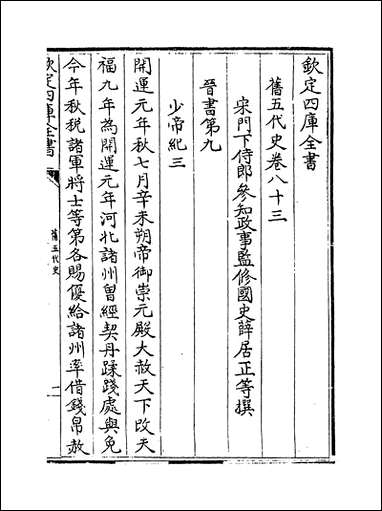 欽定四庫全書
舊五代史卷八十三
宋門下侍郎參知政事監修國史薛居正等撰
晉書第九
少帝紀三
開運元年秋七月辛未朔帝御崇元殿大赦天下改天
福九年為開運元年河北諸州曾經契丹蹂踐處與免
今年秋稅諸軍將士等第各賜優給諸州率借錢帛赦
欽定四庫全書
舊五代史
一